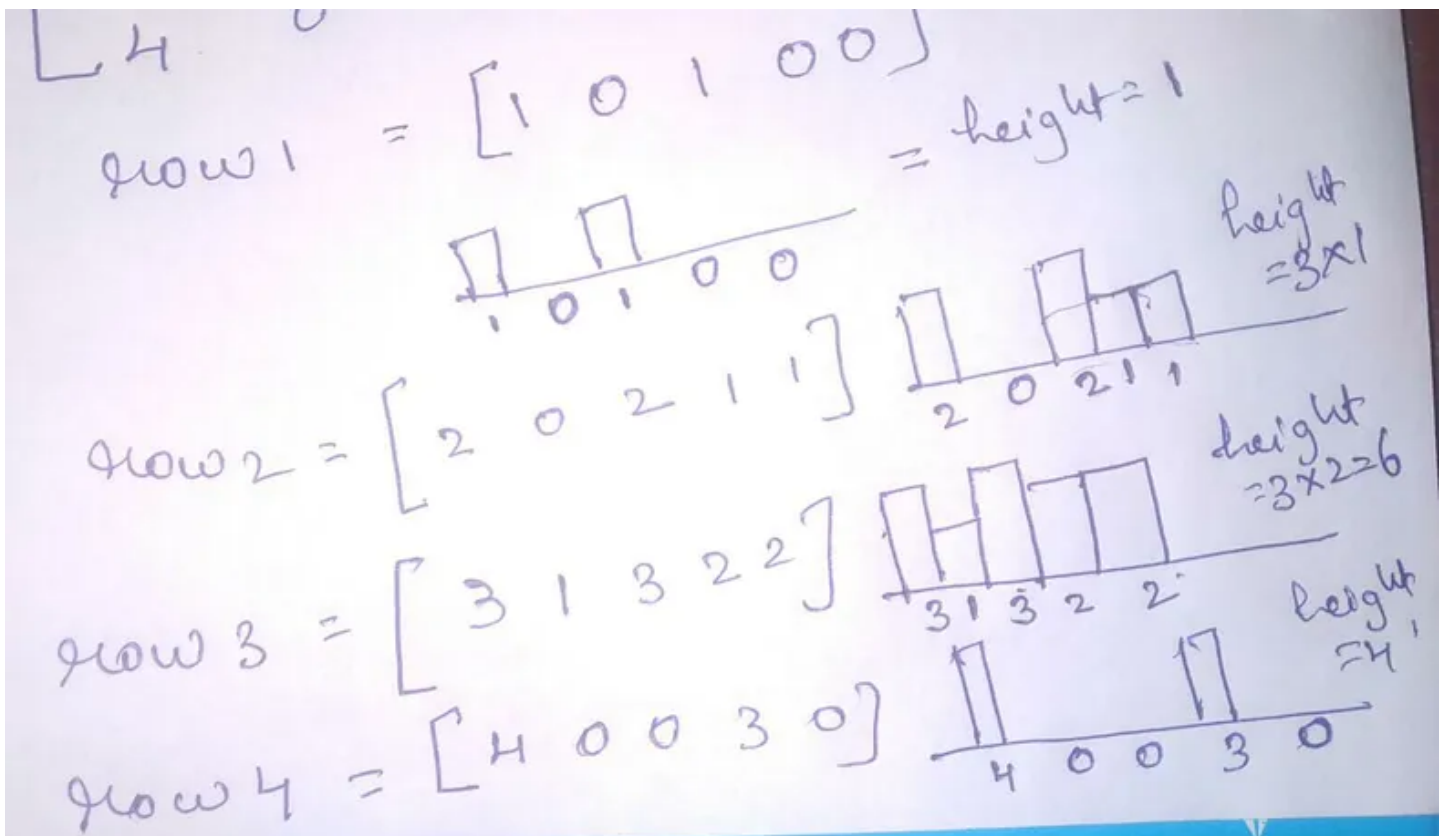 [ 4 0
row 1 = [1 0 1 0 0]
= height = 1
1 0 1 0 0
row 2 = [2 0 2 1 1]
2 0 2 1 1
height
=3x1
row 3 = [3 1 3 2 2]
3 1 3 2 2
height
=3x2=6
row 4 = [4 0 0 3 0]
4 0 0 3 0
height
=4